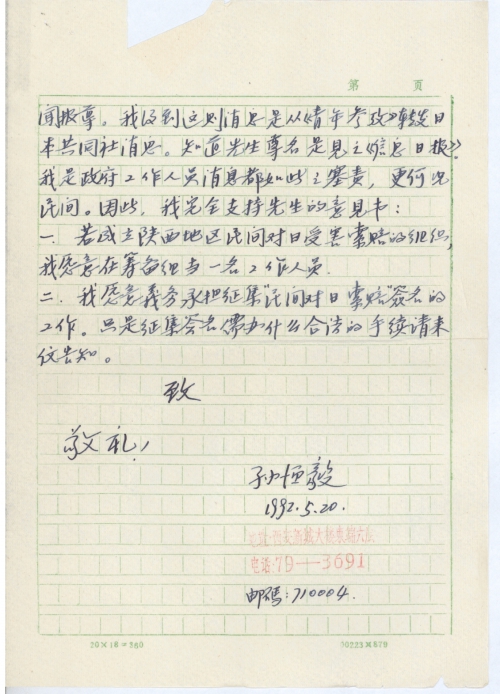 第 页
闻报导。我得到这则消息是从《青年参考》转载日
本共同社消息。知道先生尊名是见之《信息日报》。
我是政府工作人员消息都如此之塞责，更何况
民间。因此，我完全支持先生的意见书：
一、若成立陕西地区民间对日受害索赔的组织，
我愿意在筹备组当一名工作人员.
二、我愿意义务承担征集“民间对日索赔”签名的
工作。只是征集签名需办什么合法的手续请来
信告知。
致
敬礼！
孙恒毅
1992.5.20.
电话:79—3691
邮码：710004.
20×18=360
00223×870